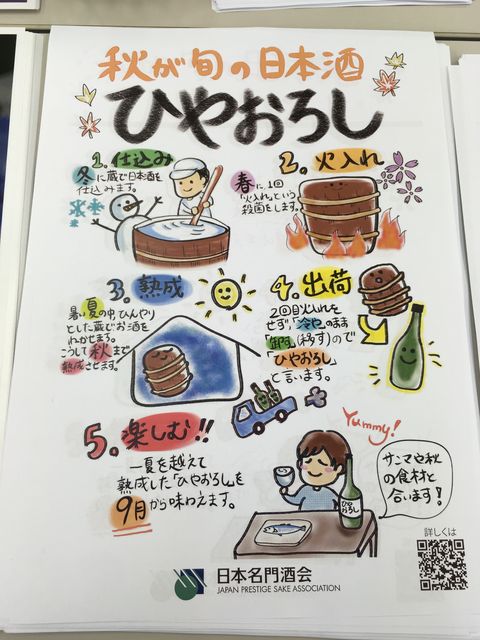 秋が旬の日本酒
ひやおろし
1. 仕込み
冬に蔵で日本酒を
仕込みます。
2. 火入れ
春に、1回
「火入れ」という
殺菌をします。
3. 熟成
暑い夏の中、ひんやり
とした蔵でお酒を
ねかせます。
こうして秋まで
熟成させます。
4. 出荷
2回目火入れを
せず、「冷や」のまま
「卸す」(移す)ので
「ひやおろし」
と言います。
5. 楽しむ!!
一夏を越えて
熟成した「ひやおろし」を
9月から味わえます。
Yummy!
サンマや秋
の食材と
合います!
ひやおろし
詳しくは
日本名門酒会
JAPAN PRESTIGE SAKE ASSOCIATION